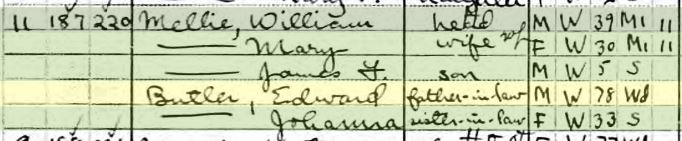 11 187 220 Mellie, William head M W 39 M1 11
— Mary wife F W 30 M1 11
— James F. son M W 5 S
Butler, Edward father-in-law M W 78 Wd
— Johanna sister-in-law F W 33 S